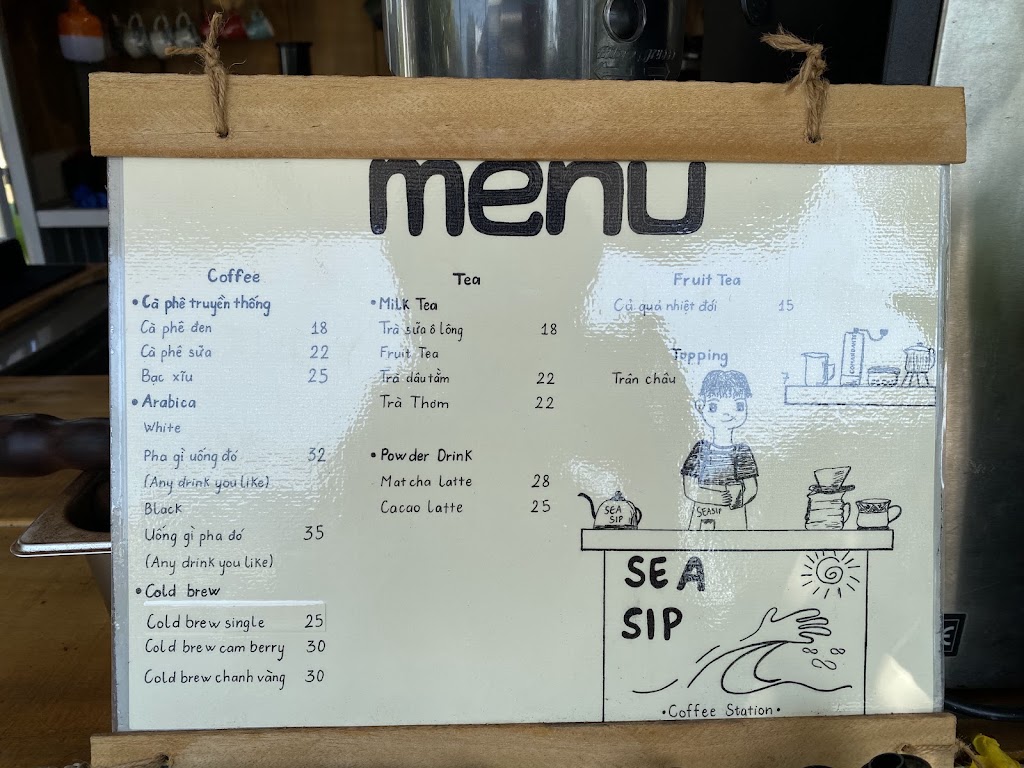 menu
Coffee
• Cà phê truyền thống
Cà phê đen 18
Cà phê sữa 22
Bạc xĩu 25
• Arabica
White
Pha gì uống đó 32
(Any drink you like)
Black
Uống gì pha đó 35
(Any drink you like)
• Cold brew
Cold brew single 25
Cold brew cam berry 30
Cold brew chanh vàng 30
Tea
• Milk Tea
Trà sữa ô lông 18
Fruit Tea
Trà dâu tằm 22
Trà Thơm 22
• Powder Drink
Matcha latte 28
Cacao latte 25
Fruit Tea
Cà quả nhiệt đới 15
Topping
Trân châu 7
SEA
SIP
SEASIP
SEA
SIP
• Coffee Station •